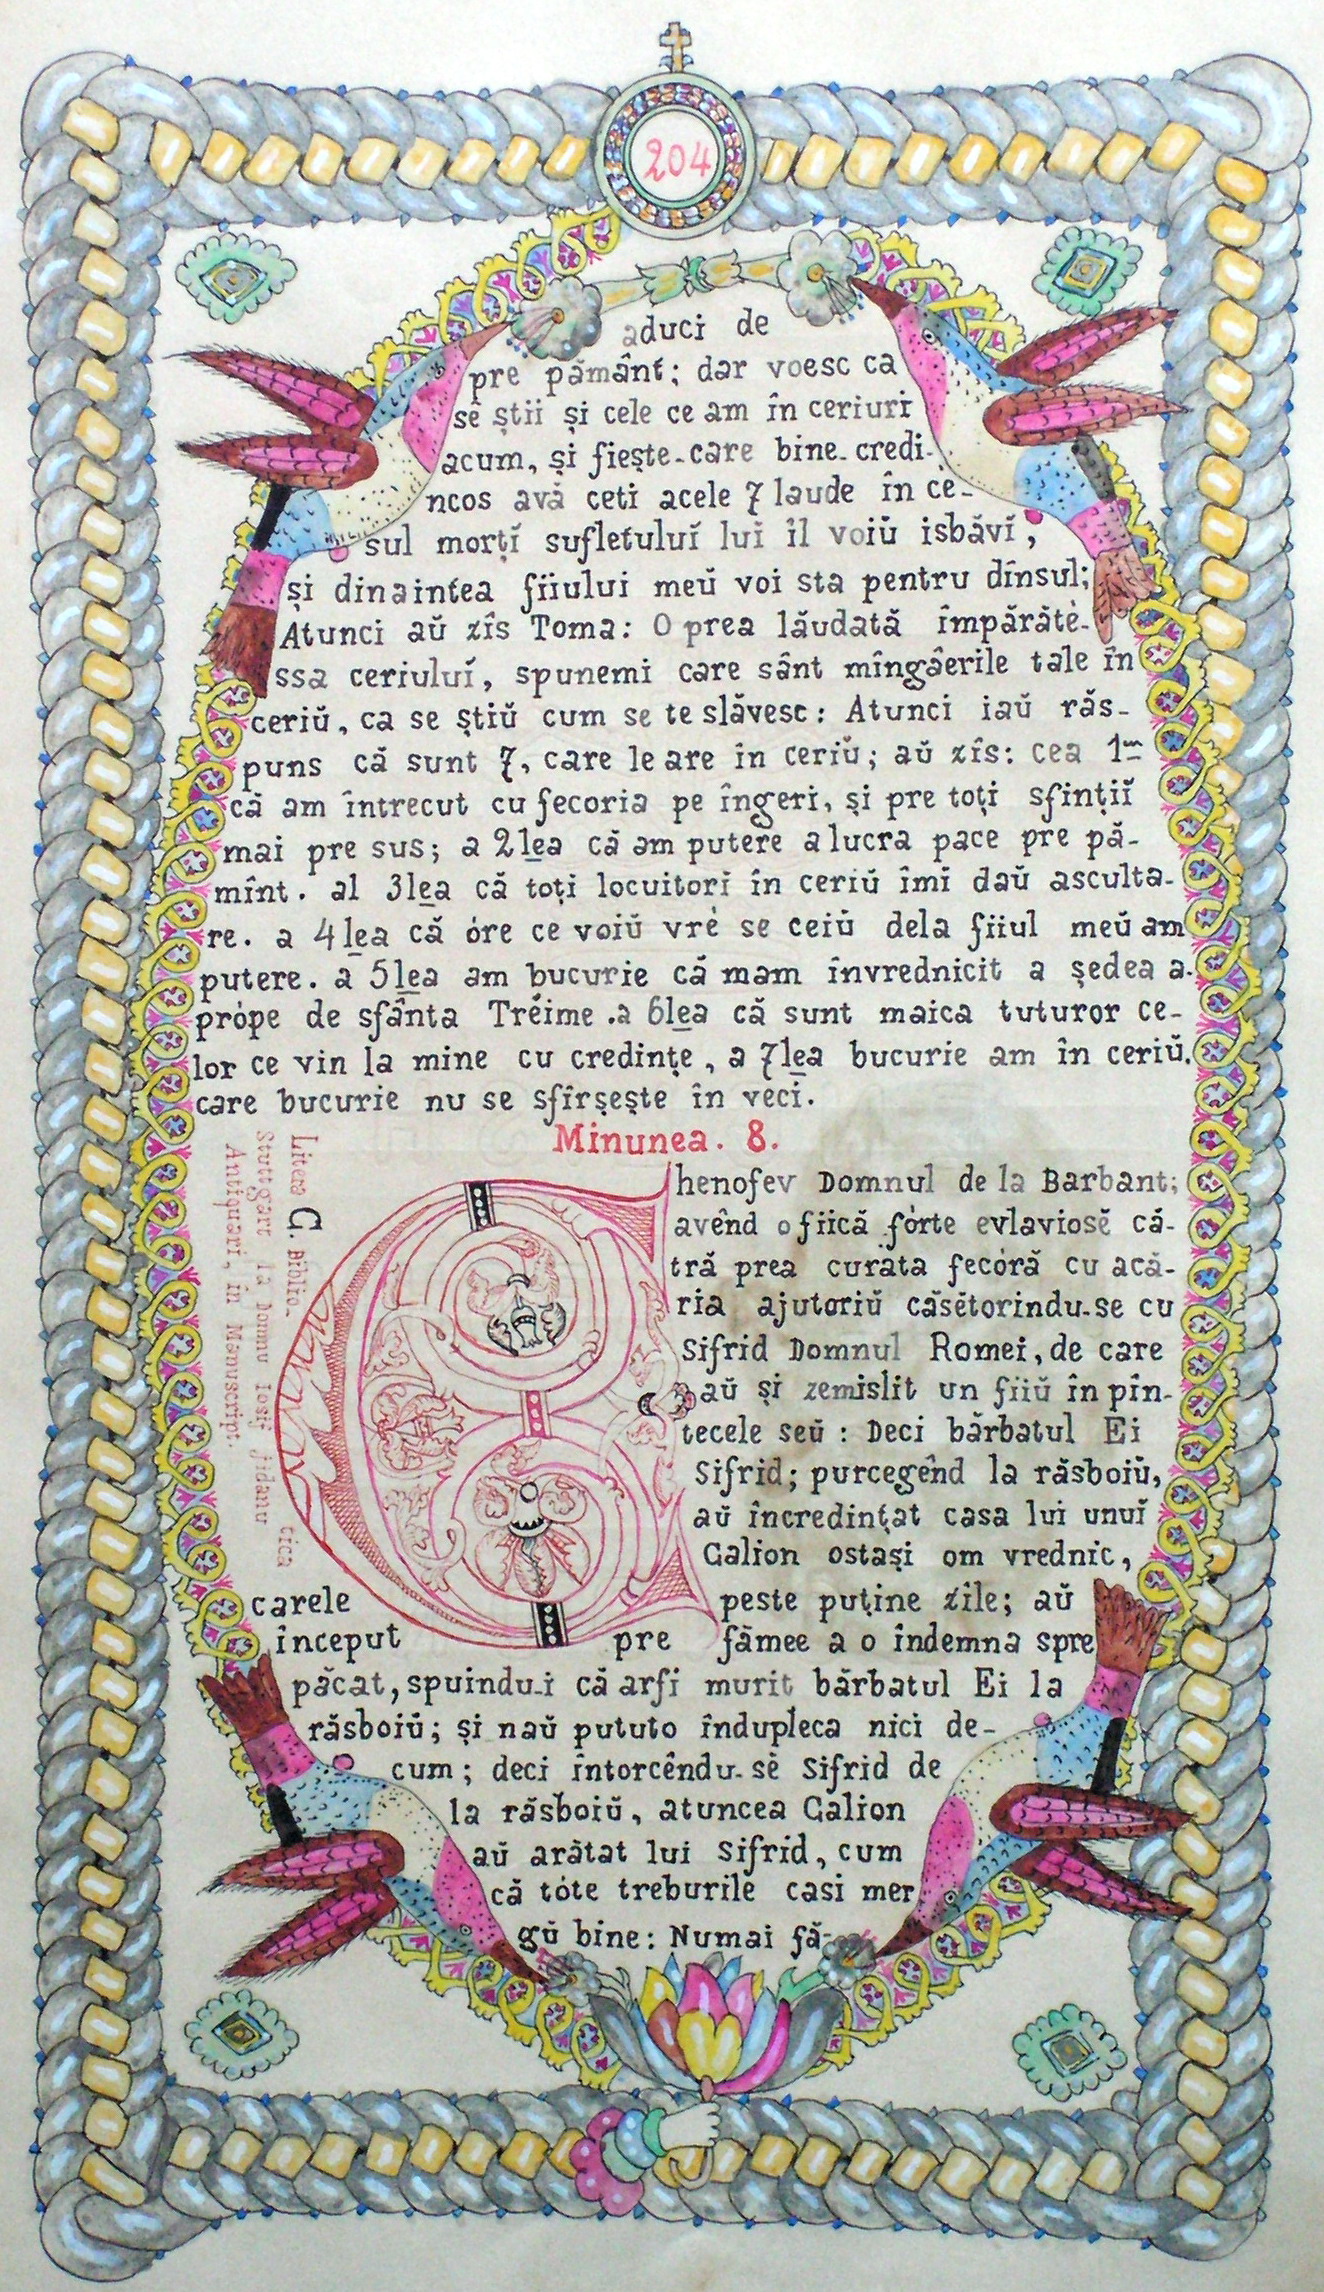 204
aduci de
pre pământ; dar voesc ca
sĕ știi și cele ce am în ceriuri
acum, și fiește-care bine-credi-
ncos avă ceti acele 7 laude în ce-
sul morțĭ sufletuluĭ lui îl voiŭ isbăvĭ,
și dinaintea fiiului meŭ voi sta pentru dînsul;
Atunci aŭ zîs Toma: O prea lăudată împărătè-
ssa ceriuluĭ, spunemi care sânt mîngâerile tale în
ceriŭ, ca se știŭ cum se te slăvesc: Atunci iaŭ răs-
puns că sunt 7, care le are în ceriŭ; aŭ zîs: cea 1m
că am întrecut cu fecoria pe îngeri, și pre toți sfinții
mai pre sus; a 2lea că am putere a lucra pace pre pă-
mînt. al 3lea că toți locuitori în ceriŭ îmi daŭ asculta-
re. a 4lea că óre ce voiŭ vré se ceiŭ dela fiiul meŭ am
putere. a 5lea am bucurie că mam învrednicit a ședea a-
própe de sfânta Tréime. a 6lea că sunt maica tuturor ce-
lor ce vin la mine cu credințe, a 7lea bucurie am în ceriŭ.
care bucurie nu se sfîrșește în veci.
Minunea. 8.
Litera G. Biblio-
tica
Stuttgart la Domnu Iosif jidanu
Antiquari, in Manuscript.
G
henofev Domnul de la Barbant;
avênd o fiică fórte evlaviosĕ că-
tră prea curata fecóră cu acă-
ria ajutoriŭ căsĕtorindu-se cu
Sifrid Domnul Romei, de care
aŭ și zemislit un fiiŭ în pîn-
tecele seŭ: Deci bărbatul Ei
Sifrid; purcegênd la răsboiŭ,
aŭ încredințat casa lui unuĭ
Galion ostași om vrednic,
carele peste puține zile; aŭ
început pre fămee a o îndemna spre
păcat, spuindu-i că arfi murit bărbatul Ei la
răsboiŭ; și naŭ pututo îndupleca nici de-
cum; deci întorcêndu-sĕ Sifrid de
la răsboiŭ, atuncea Galion
aŭ arătat lui Sifrid, cum
că tóte treburile casi mer
gŭ bine: Numai fă-